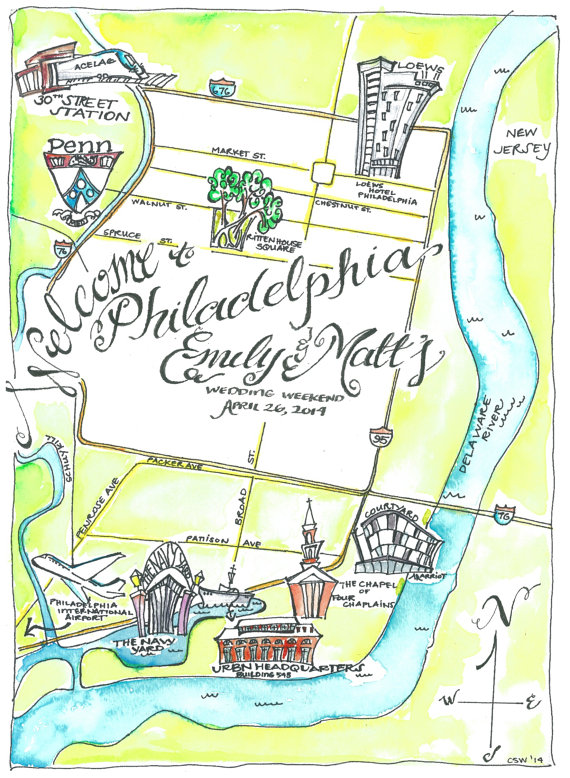 ACELA
30TH STREET
STATION
676
LOEWS
NEW
JERSEY
Penn
MARKET ST.
LOEWS
HOTEL
PHILADELPHIA
WALNUT ST.
CHESTNUT ST.
RITTENHOUSE
SQUARE
SPRUCE ST.
76
Welcome to
Philadelphia
Emily & Matt's
WEDDING WEEKEND
APRIL 26, 2014
95
DELAWARE
RIVER
SCHUYLKILL
PACKER AVE
PENROSE AVE
BROAD ST.
76
PATISON AVE
COURTYARD
MARRIOT
THE NAVY YARD
THE CHAPEL
OF
FOUR
CHAPLAINS
PHILADELPHIA
INTERNATIONAL
AIRPORT
THE NAVY
YARD
URBN HEADQUARTERS
BUILDING 543
N
W
E
S
CSW '14